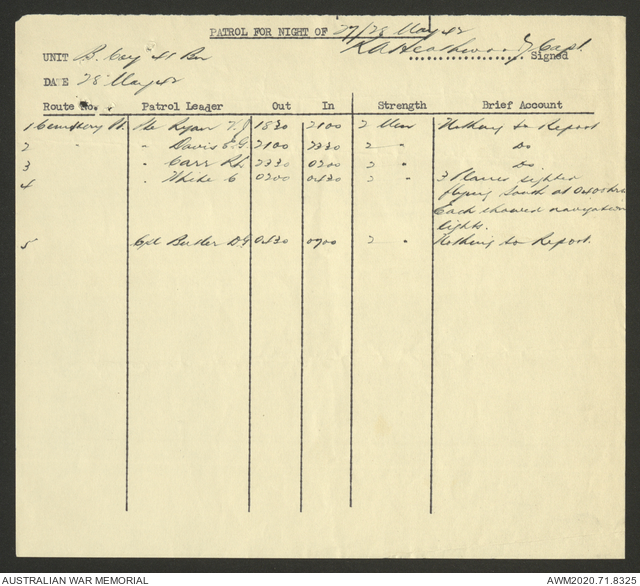 PATROL FOR NIGHT OF 27/28 May 42
UNIT B. Coy Bn
Capt.
Signed
DATE 28 May 42
Route No. Patrol Leader Out In Strength Brief Account
1 Pt. Pte Ryan T.J 1830 2100 2 Men Nothing to Report
2 " " Davis E.G 2100 2330 2 " Do
3 " Carr 2330 0200 2 " Do
4 " White C 0200 0430 2 " 3 Planes sighted
flying South at 0400 hrs.
Each showed navigation
lights.
5 Cpl Butler D.G 0430 0700 2 " Nothing to Report.
AUSTRALIAN WAR MEMORIAL
AWM2020.71.8325